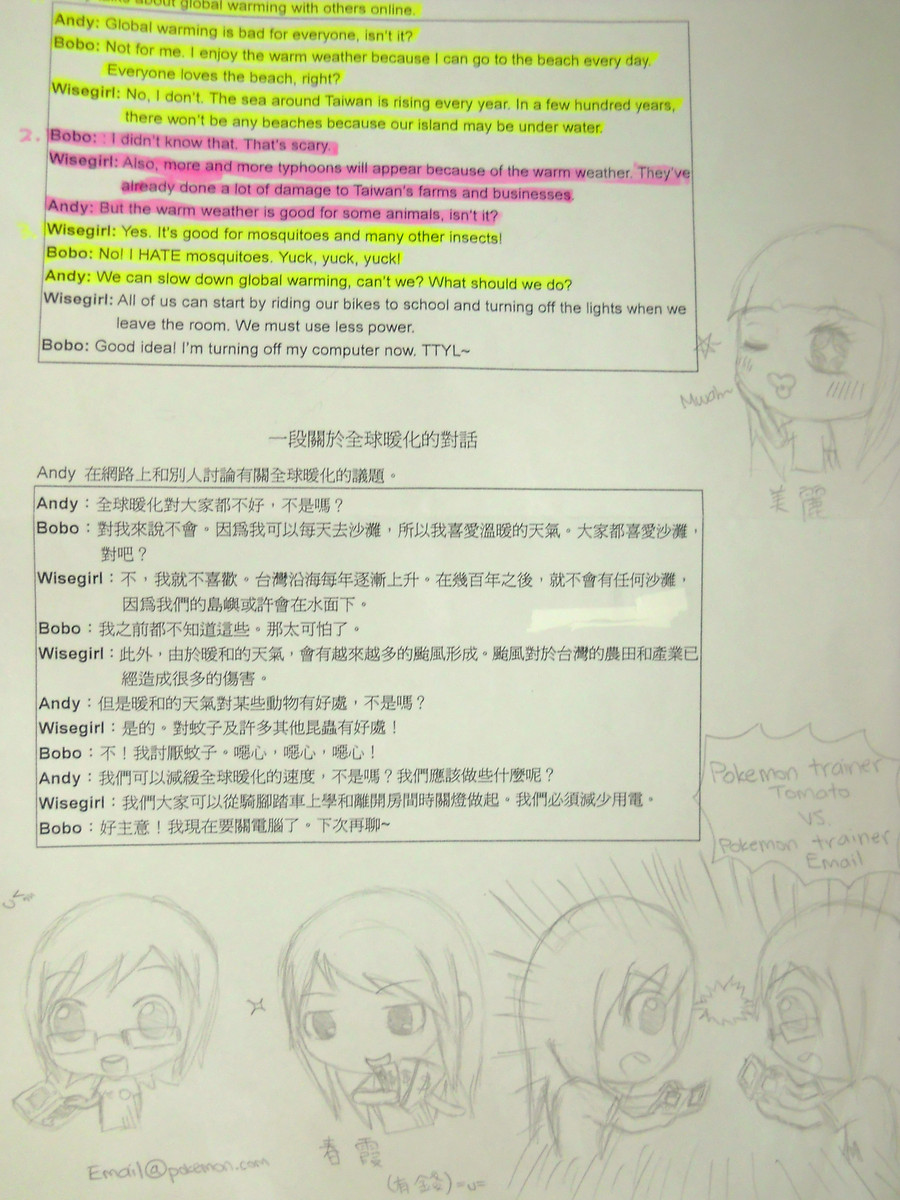 about global warming with others online.
Andy: Global warming is bad for everyone, isn't it?
Bobo: Not for me. I enjoy the warm weather because I can go to the beach every day.
Everyone loves the beach, right?
Wisegirl: No, I don't. The sea around Taiwan is rising every year. In a few hundred years,
there won't be any beaches because our island may be under water.
2. Bobo: : I didn't know that. That's scary.
Wisegirl: Also, more and more typhoons will appear because of the warm weather. They've
already done a lot of damage to Taiwan's farms and businesses.
Andy: But the warm weather is good for some animals, isn't it?
3. Wisegirl: Yes. It's good for mosquitoes and many other insects!
Bobo: No! I HATE mosquitoes. Yuck, yuck, yuck!
Andy: We can slow down global warming, can't we? What should we do?
Wisegirl: All of us can start by riding our bikes to school and turning off the lights when we
leave the room. We must use less power.
Bobo: Good idea! I'm turning off my computer now. TTYL~
Mwah~
美麗
一段關於全球暖化的對話
Andy 在網路上和別人討論有關全球暖化的議題。
Andy：全球暖化對大家都不好，不是嗎？
Bobo：對我來說不會。因為我可以每天去沙灘，所以我喜愛溫暖的天氣。大家都喜愛沙灘，
對吧？
Wisegirl：不，我就不喜歡。台灣沿海每年逐漸上升。在幾百年之後，就不會有任何沙灘，
因為我們的島嶼或許會在水面下。
Bobo：我之前都不知道這些。那太可怕了。
Wisegirl：此外，由於暖和的天氣，會有越來越多的颱風形成。颱風對於台灣的農田和產業已
經造成很多的傷害。
Andy：但是暖和的天氣對某些動物有好處，不是嗎？
Wisegirl：是的。對蚊子及許多其他昆蟲有好處！
Bobo：不！我討厭蚊子。噁心，噁心，噁心！
Andy：我們可以減緩全球暖化的速度，不是嗎？我們應該做些什麼呢？
Wisegirl：我們大家可以從騎腳踏車上學和離開房間時關燈做起。我們必須減少用電。
Bobo：好主意！我現在要關電腦了。下次再聊~
Pokemon trainer
Tomato
VS.
Pokemon trainer
Email
Email@pokemon.com
春霞
(有錢)=u=